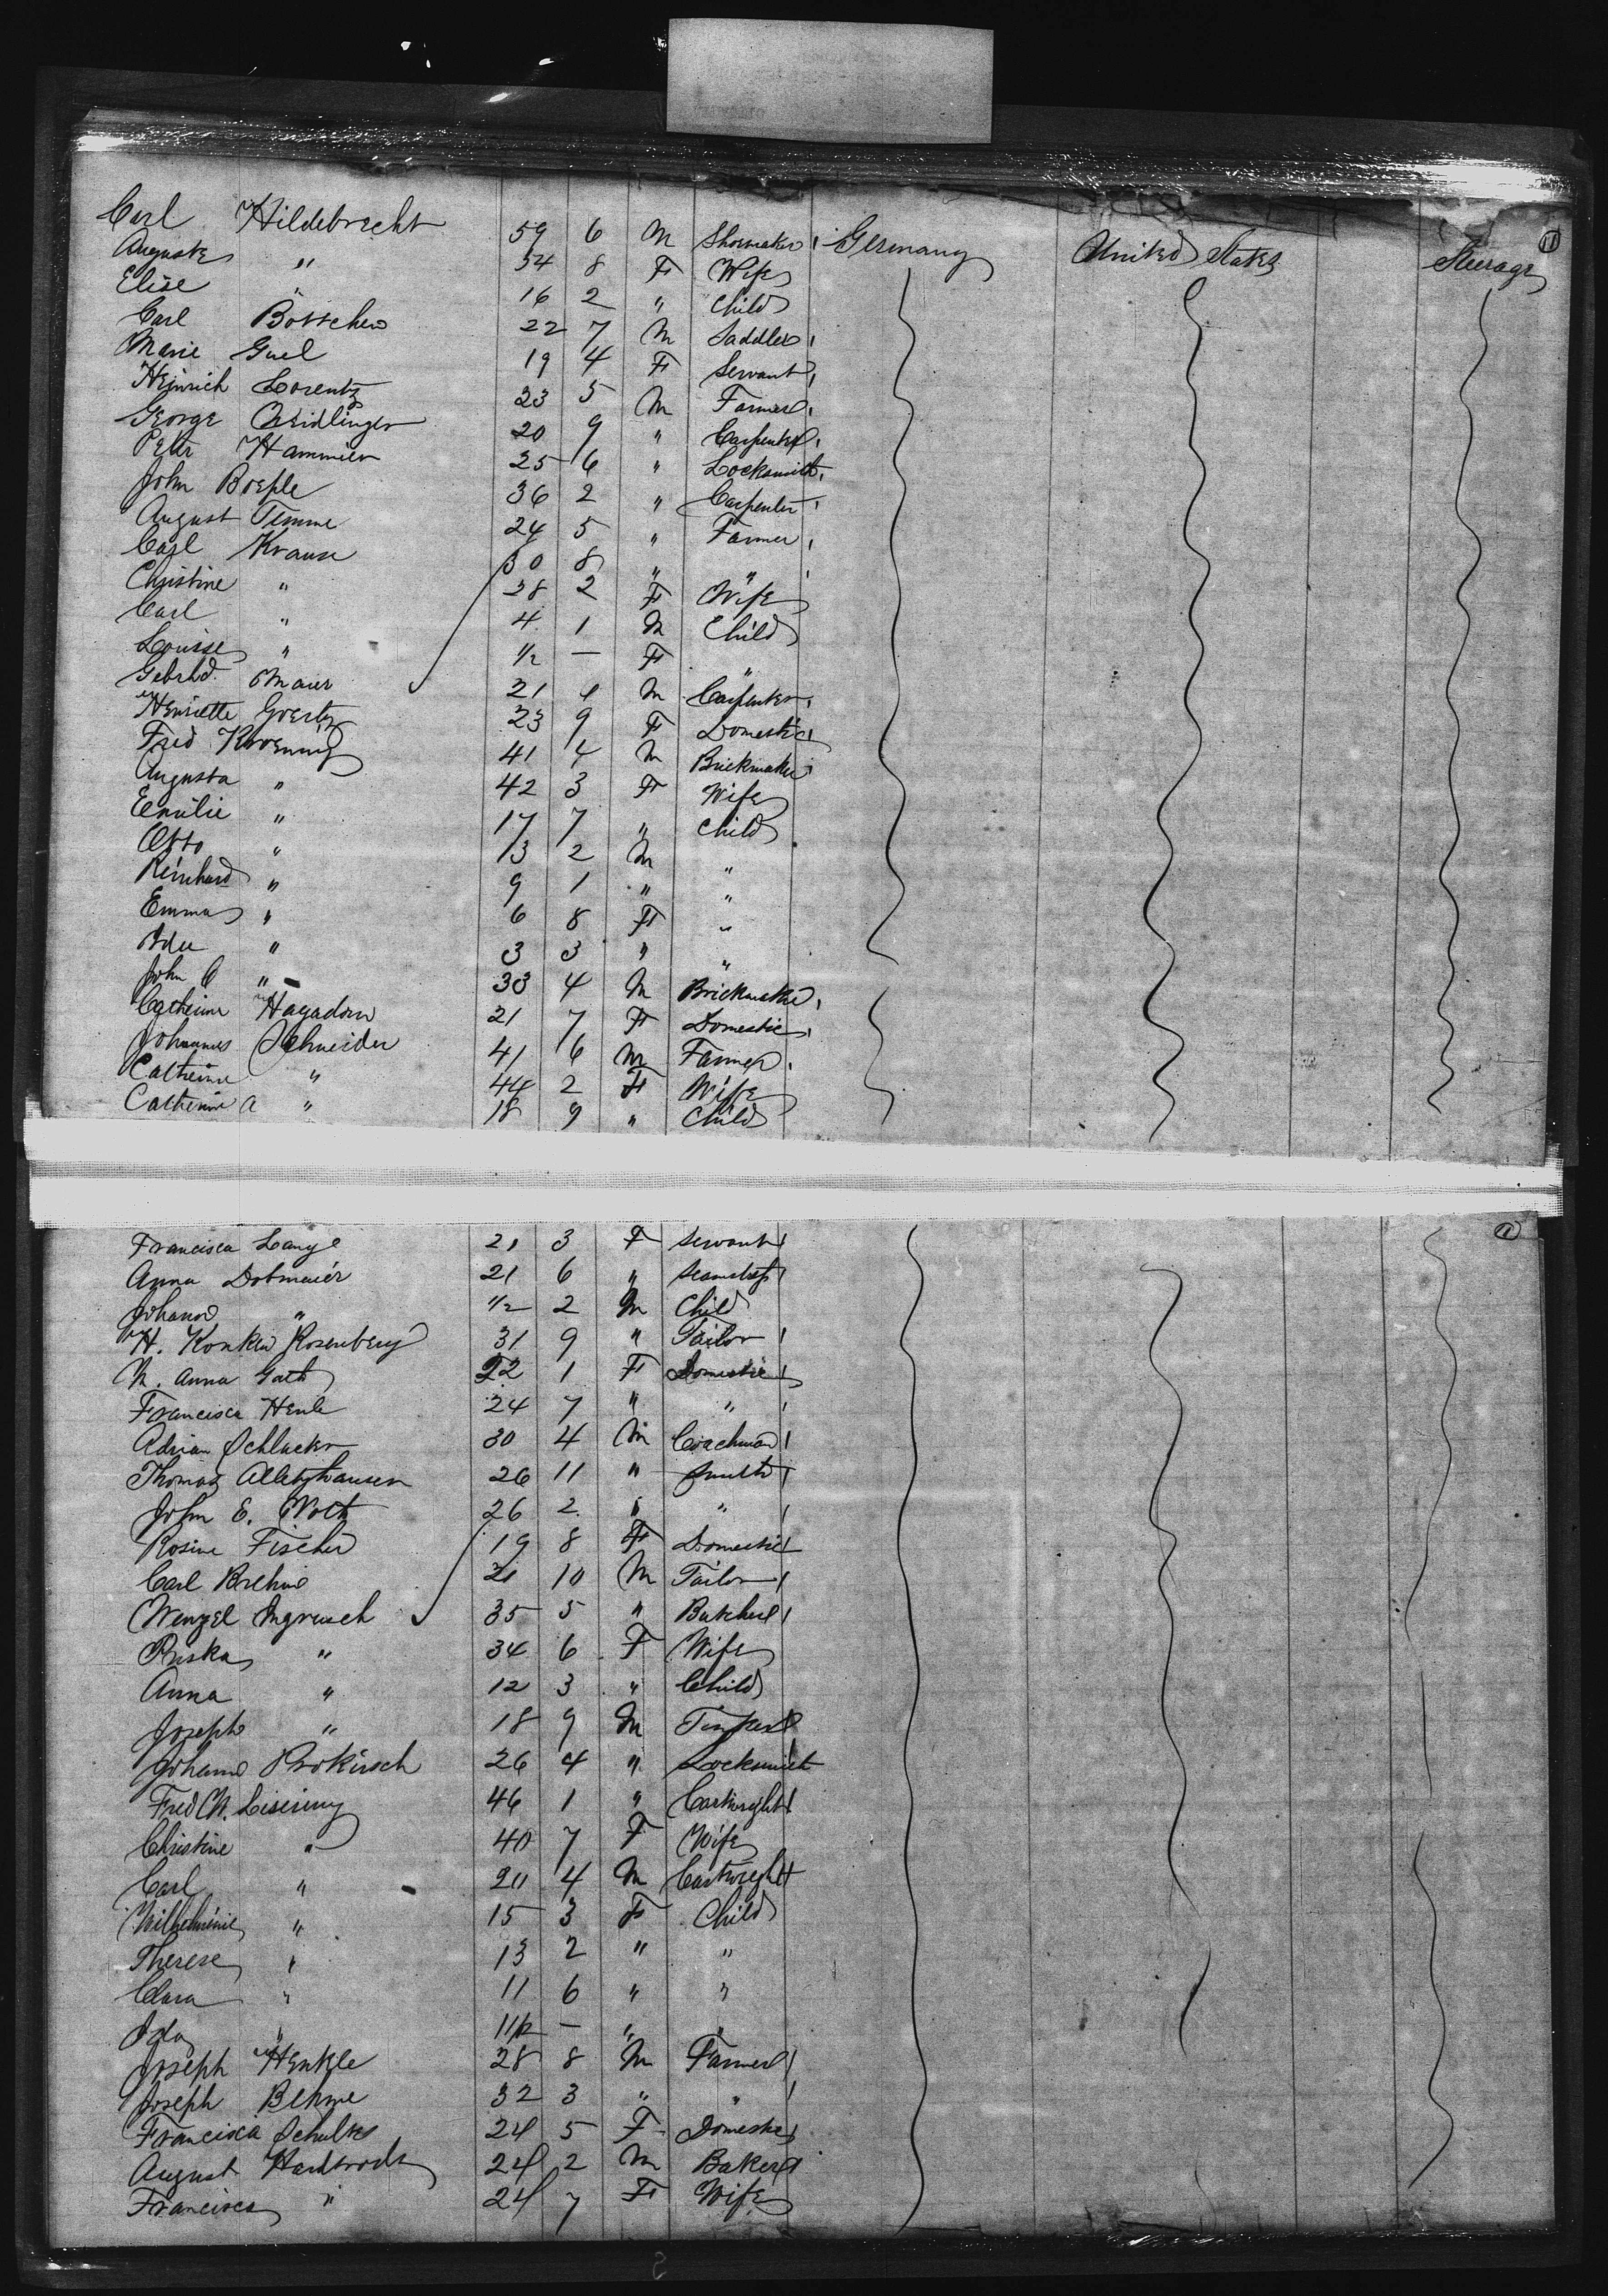 Carl Hildebrecht 59 6 M Shoemaker Germany United States Steerage 11
Auguste " 54 8 F Wife
Elise " 16 2 " Child
Carl Bottcher 22 7 M Saddler
Marie Guel 19 4 F Servant
Heinrich Lorentz 23 5 M Farmer
George Weidlinger 20 9 " Carpenter
Peter Hammier 25 6 " Locksmith
John Boeple 36 2 " Carpenter
August Timme 24 5 " Farmer
Carl Krause 30 8 " "
Christine " 28 2 F Wife
Carl " 4 1 M Child
Louise " 1/2 — F "
Gebhd. Maier 21 4 M Carpenter
Henriette Goertz 23 9 F Domestic
Fred Kroennig 41 4 M Brickmaker
Augusta " 42 3 F Wife
Emilie " 17 7 " Child
Otto " 13 2 M "
Reinhard " 9 1 " "
Emma " 6 8 F "
Ida " 3 3 " "
John C " 33 4 M Brickmaker
Catherine Hagadorn 21 7 F Domestic
Johannes Schneider 41 6 M Farmer
Catherine " 44 2 F Wife
Catherine A " 18 9 " Child
Francisca Lange 21 3 F Servant 11
Anna Dobmaier 21 6 "
Johann " 1/2 2 M Child
H. Konken Rosenberg 31 9 " Tailor
M. Anna Gath 22 1 F Domestic
Francisca Henle 24 7 " "
Adrian Schlucker 30 4 M Coachman
Thomas 26 11 " Smith
John E. 26 2 " "
Rosine Fischer 19 8 F Domestic
Carl Brehme 21 10 M Tailor
Wenzel Ingrusch 35 5 " Butcher
Priska " 34 6 F Wife
Anna " 12 3 " Child
Joseph " 18 9 M
Johann Prokirsch 26 4 " Locksmith
Fred W. Leisering 46 1 " Cartwright
Christine " 40 7 F Wife
Carl " 20 4 M Cartwright
Wilhelmine " 15 3 F Child
Therese " 13 2 " "
Clara " 11 6 " "
Ida " 11/12 — " "
Joseph Henkle 28 8 M Farmer
Joseph Behme 32 3 " "
Francisca Schultes 24 5 F Domestic
August 24 2 M Baker
Francisca " 24 7 F Wife